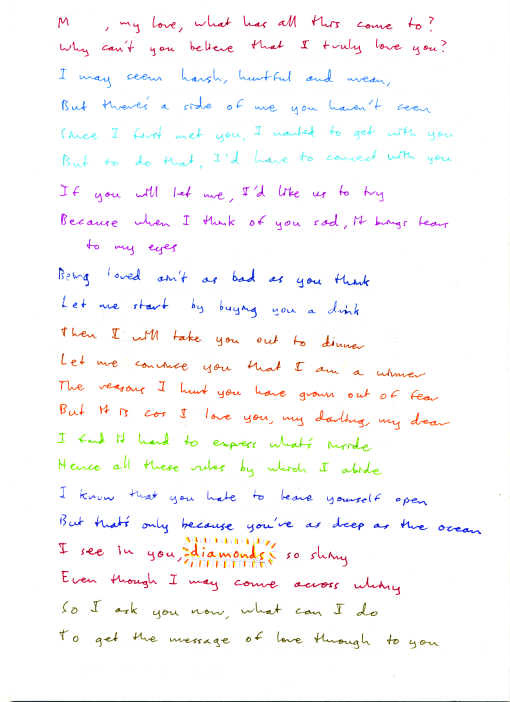 M , my love, what has all this come to?
Why can't you believe that I truly love you?
I may seem harsh, hurtful and mean,
But there's a side of me you haven't seen
Since I first met you, I wanted to get with you
But to do that, I'd have to connect with you
If you will let me, I'd like us to try
Because when I think of you sad, it brings tears
to my eyes
Being loved ain't as bad as you think
Let me start by buying you a drink
Then I will take you out to dinner
Let me convince you that I am a winner
The reasons I hurt you have grown out of fear
But it is cos I love you, my darling, my dear
I find it hard to express what's inside
Hence all these rules by which I abide
I know that you hate to leave yourself open
But that's only because you're as deep as the ocean
I see in you, diamonds so shiny
Even though I may come across whiny
So I ask you now, what can I do
To get the message of love through to you